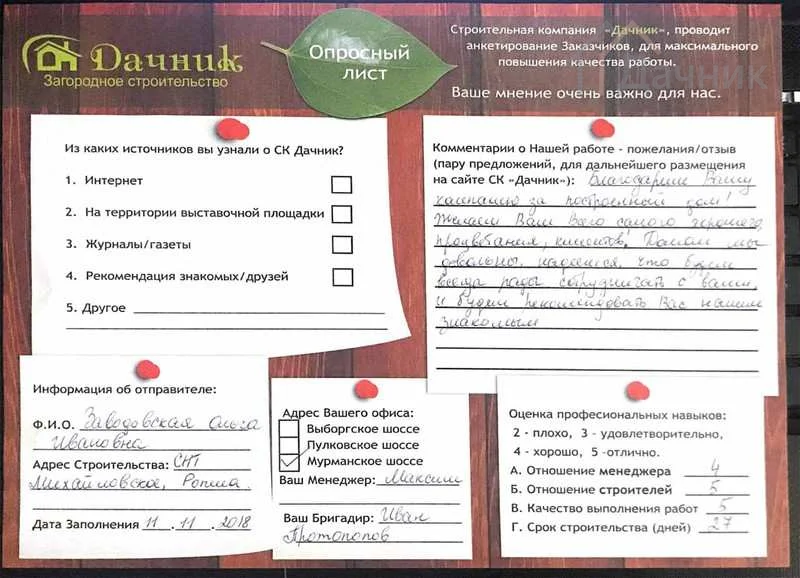 Дачник
Загородное строительство
Опросный
лист
Строительная компания «Дачник», проводит
анкетирование Заказчиков, для максимального
повышения качества работы.
Ваше мнение очень важно для нас.
Дачник
Из каких источников вы узнали о СК Дачник?
1. Интернет
2. На территории выставочной площадки
3. Журналы/газеты
4. Рекомендация знакомых/друзей
5. Другое
Комментарии о Нашей работе - пожелания/отзыв
(пару предложений, для дальнейшего размещения
на сайте СК «Дачник»): Благодарим Вашу
компанию за построенный дом!
Желаем Вам Всего самого хорошего,
процветания, клиентов! Домом мы
довольны, надеемся, что будем
всегда рады сотрудничать с вами,
и будем рекомендовать Вас нашим
знакомым
Информация об отправителе:
Ф.И.О. Заводовская Ольга
Ивановна
Адрес Строительства: СНТ
Михайловское, Ропша.
Дата Заполнения 11 . 11 . 2018
Адрес Вашего офиса:
Выборгское шоссе
Пулковское шоссе
Мурманское шоссе
Ваш Менеджер: Максим
Ваш Бригадир: Иван
Протопопов
Оценка професиональных навыков:
2 - плохо, 3 - удовлетворительно,
4 - хорошо, 5 -отлично.
А. Отношение менеджера 4
Б. Отношение строителей 5
В. Качество выполнения работ 5
Г. Срок строительства (дней) 27